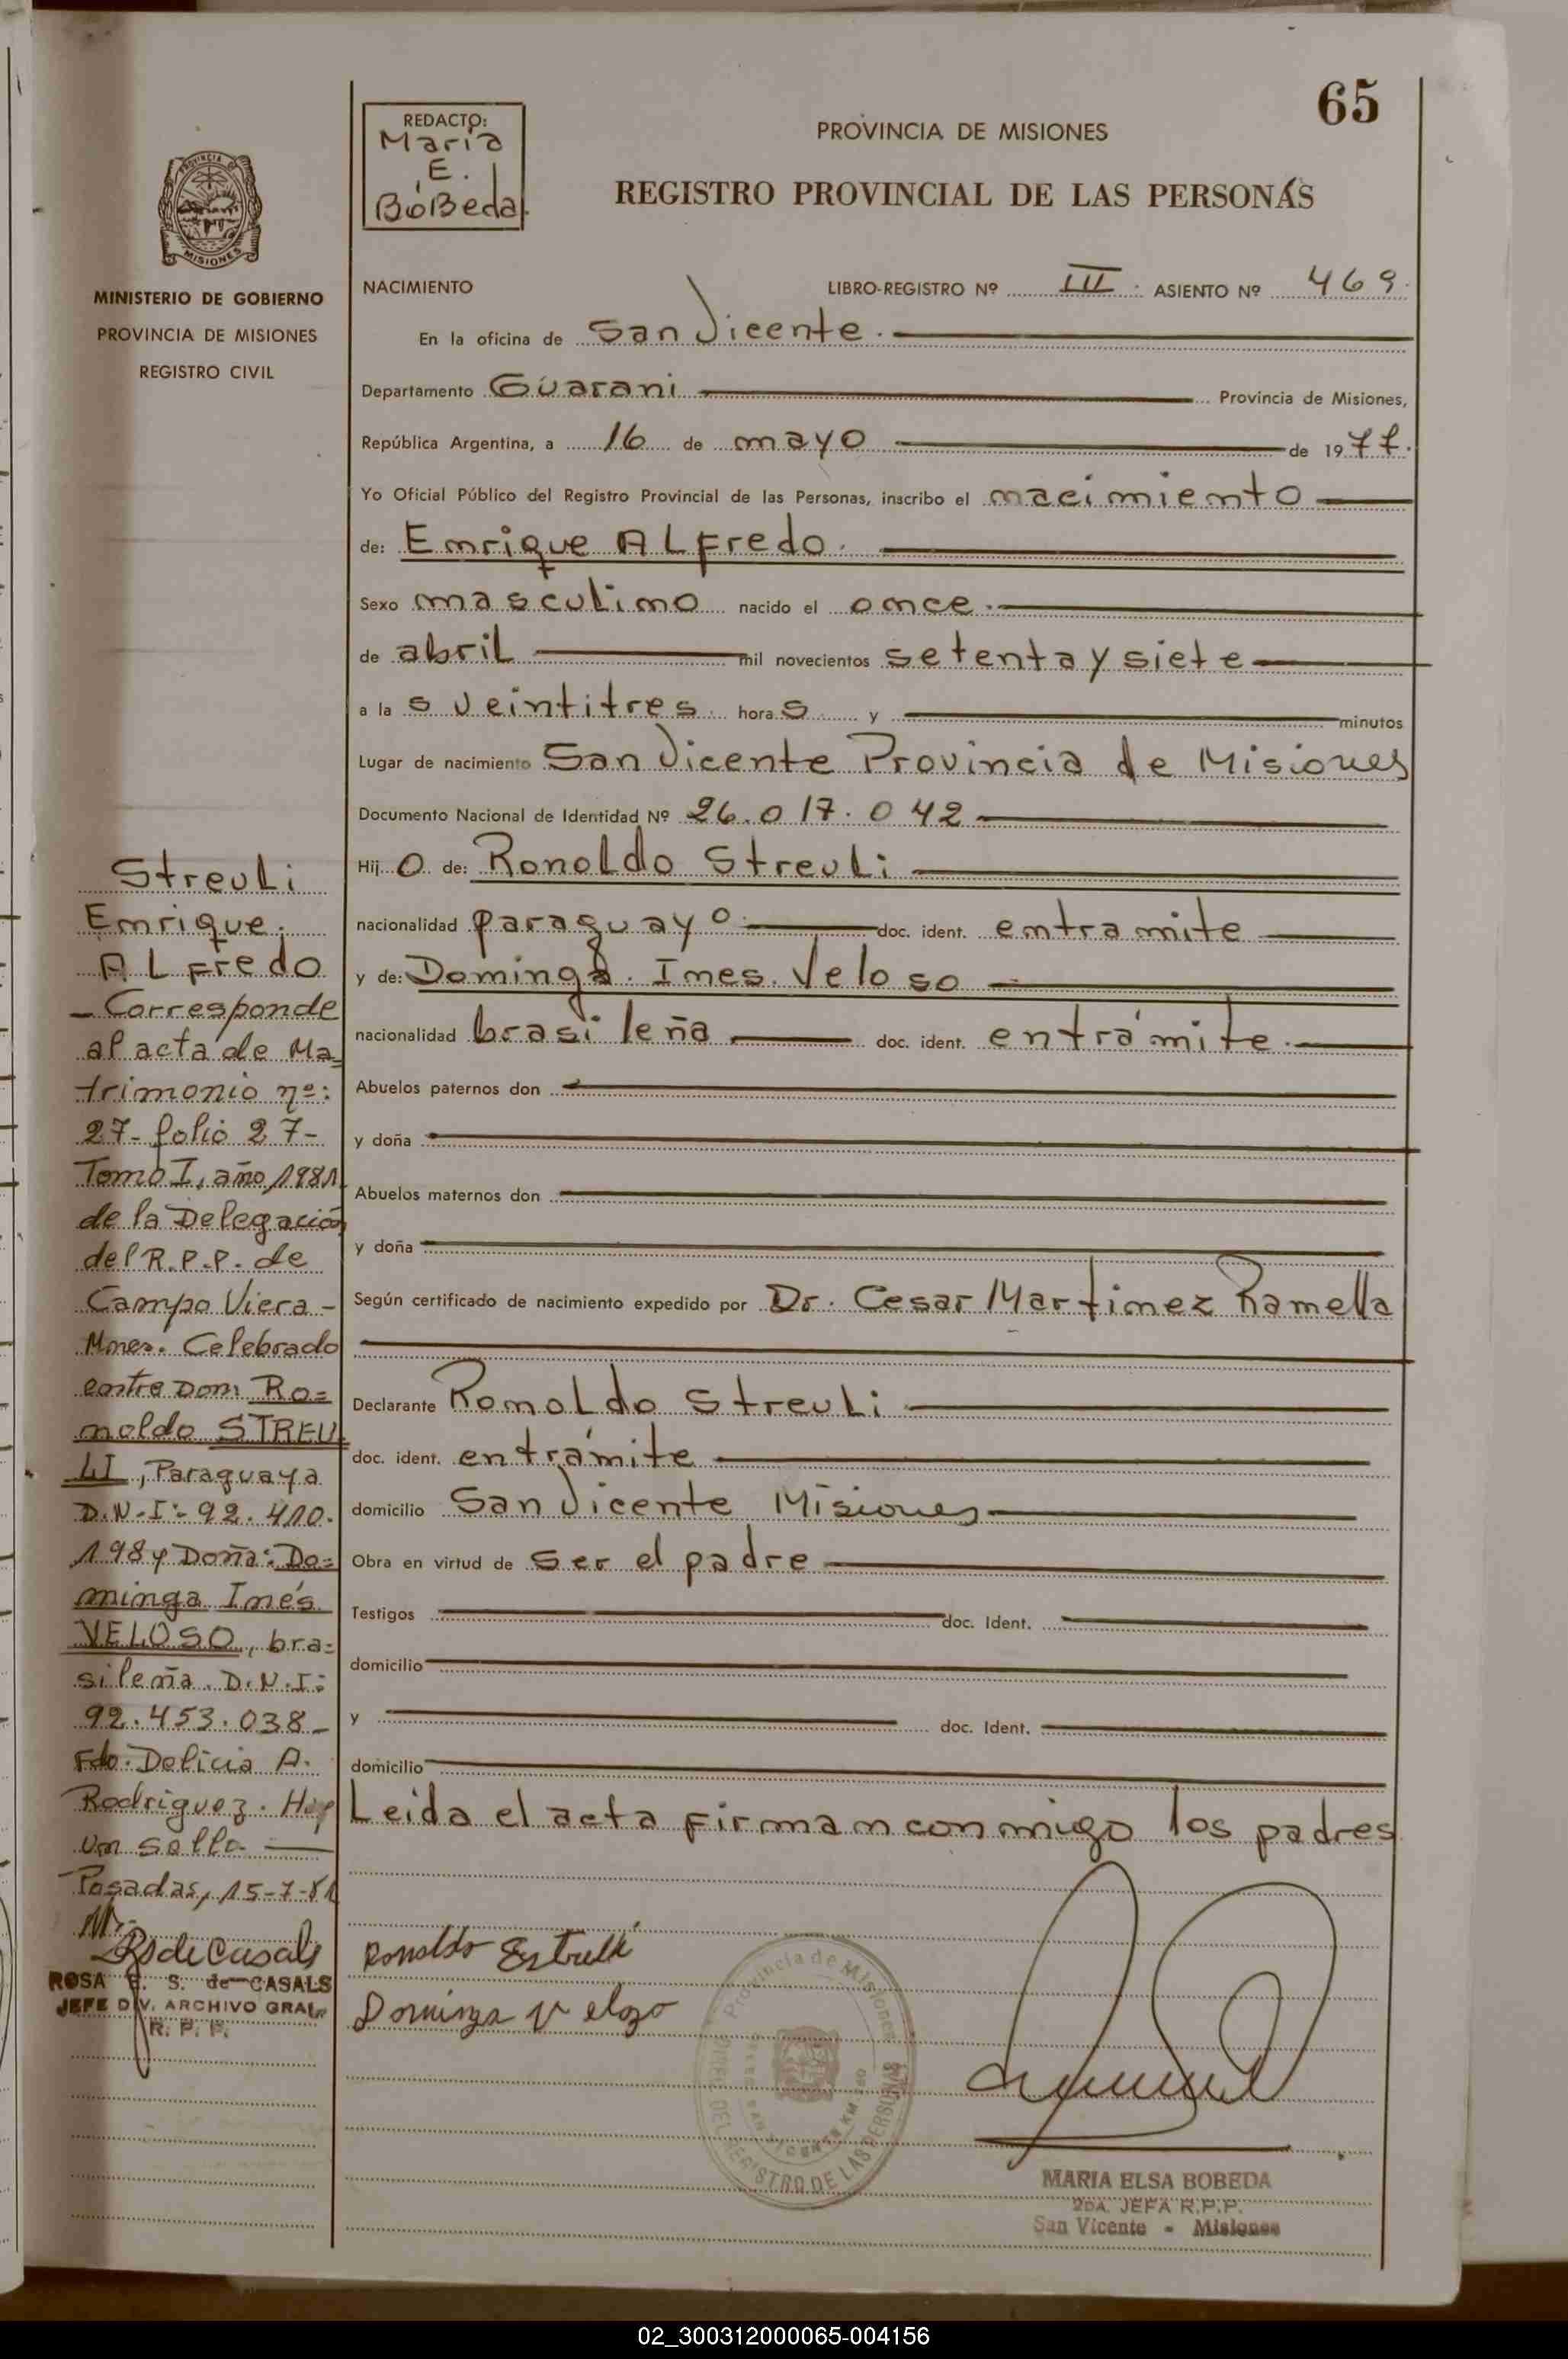 65
REDACTO:
Maria
E.
BóBeda
PROVINCIA DE MISIONES
REGISTRO PROVINCIAL DE LAS PERSONAS
PROVINCIA DE
MISIONES
MINISTERIO DE GOBIERNO
PROVINCIA DE MISIONES
REGISTRO CIVIL
NACIMIENTO LIBRO-REGISTRO Nº III. ASIENTO Nº 469.
En la oficina de San Vicente.
Departamento Guarani Provincia de Misiones,
República Argentina, a 16 de mayo de 1977.
Yo Oficial Público del Registro Provincial de las Personas, inscribo el nacimiento
de: Enrique ALFredo.
Sexo masculino nacido el once.
de abril mil novecientos setenta y siete
a la s veintitres hora s y minutos
Lugar de nacimiento San Vicente Provincia de Misiones
Documento Nacional de Identidad Nº 26.017.042
Hij o de: Ronoldo Streuli
nacionalidad paraguayo doc. ident. entramite
y de: Dominga. Ines. Veloso
nacionalidad brasileña doc. ident. entrámite.
Abuelos paternos don
y doña
Abuelos maternos don
y doña
Según certificado de nacimiento expedido por Dr. Cesar Martinez Ramella
Declarante Ronoldo Streuli
doc. ident. entrámite
domicilio San Vicente Misiones
Obra en virtud de ser el padre
Testigos doc. Ident.
domicilio
y doc. Ident.
domicilio
Leida el acta Firman conmigo los padres
Ronoldo
Dominga Velozo
Provincia de Misiones
SAN VICENTE KM
DEL REGISTRO DE LAS PERSONAS
MARIA ELSA BOBEDA
2DA. JEFA R.P.P.
San Vicente - Misiones
Streuli
Enrique.
ALFredo
- Corresponde
al acta de Ma=
trimonio nº:
27- folio 27-
Tomo I, año 1981
de la Delegación
del R.P.P. de
Campo Viera -
Mnes. Celebrado
entre Don: Ro=
noldo STREU
LI, Paraguaya
D.N.I:- 92.410.
198 y Doña: Do=
minga Inés
VELOSO, bra=
sileña. D.N.I:
92.453.038-
Fdo. Delicia A.
Rodriguez. Hay
un sello
Posadas, 15-7-81
RSdeCasals
ROSA E. S. de CASALS
JEFE DIV. ARCHIVO GRAL.
R. P. P.
02_300312000065-004156